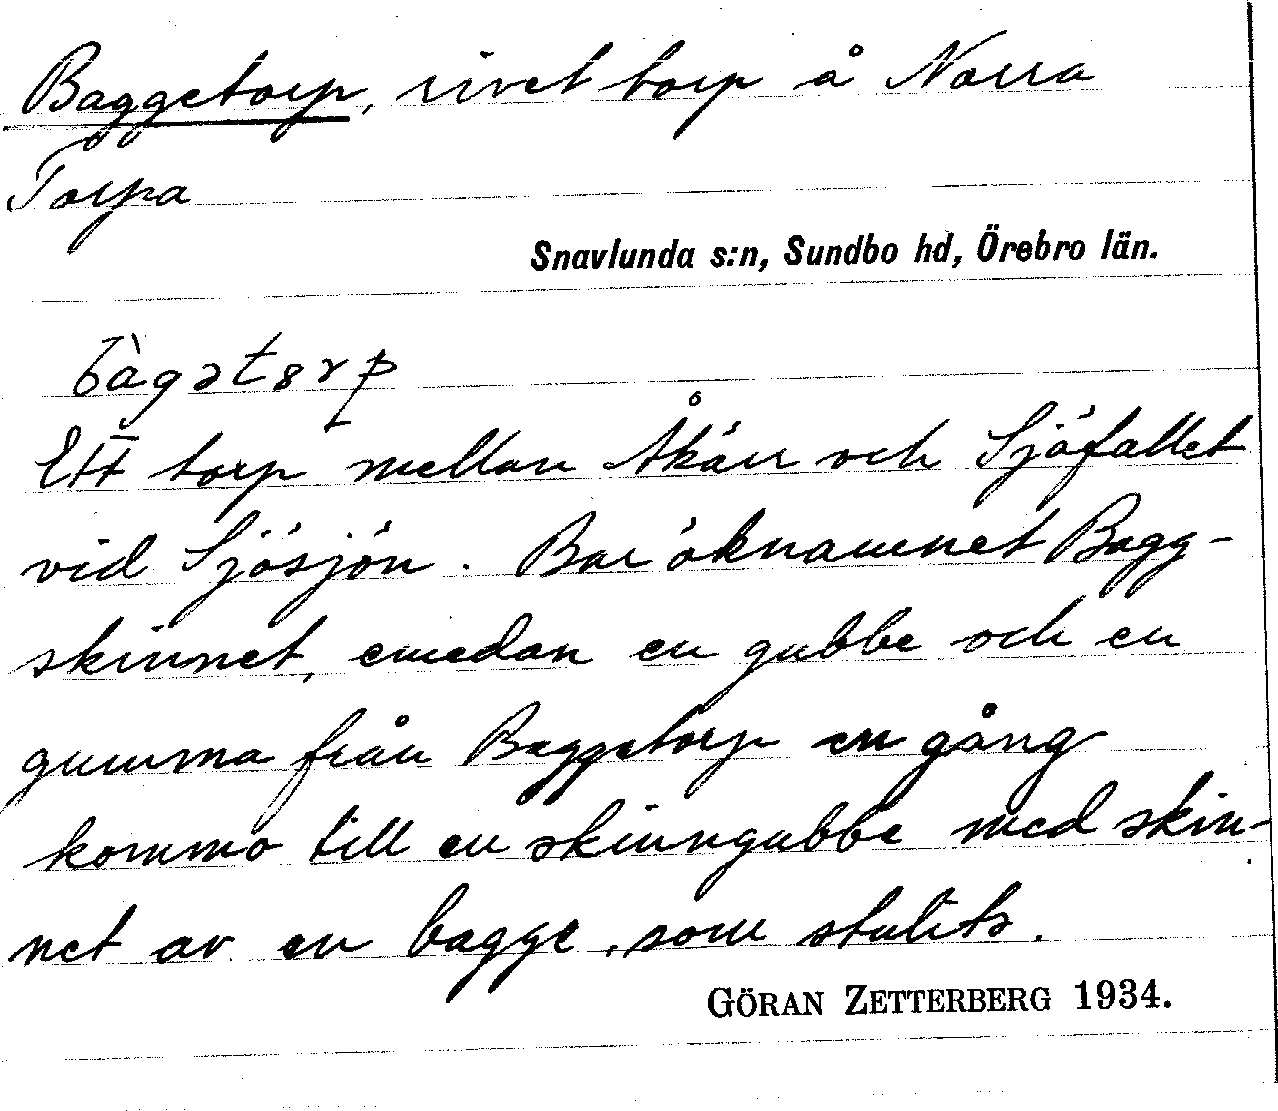 Baggetorp, rivet torp å Norra
Torpa
Snavlunda s:n, Sundbo hd, Örebro län.
bàgətərp
Ett torp mellan Åkärr och Sjöfallet
vid Sjösjön. Bar öknamnet Bagg-
skinnet, emedan en gubbe och en
gumma från Baggetorp en gång
kommo till en skinngubbe med skin-
net av en bagge, som stulits.
GÖRAN ZETTERBERG 1934.